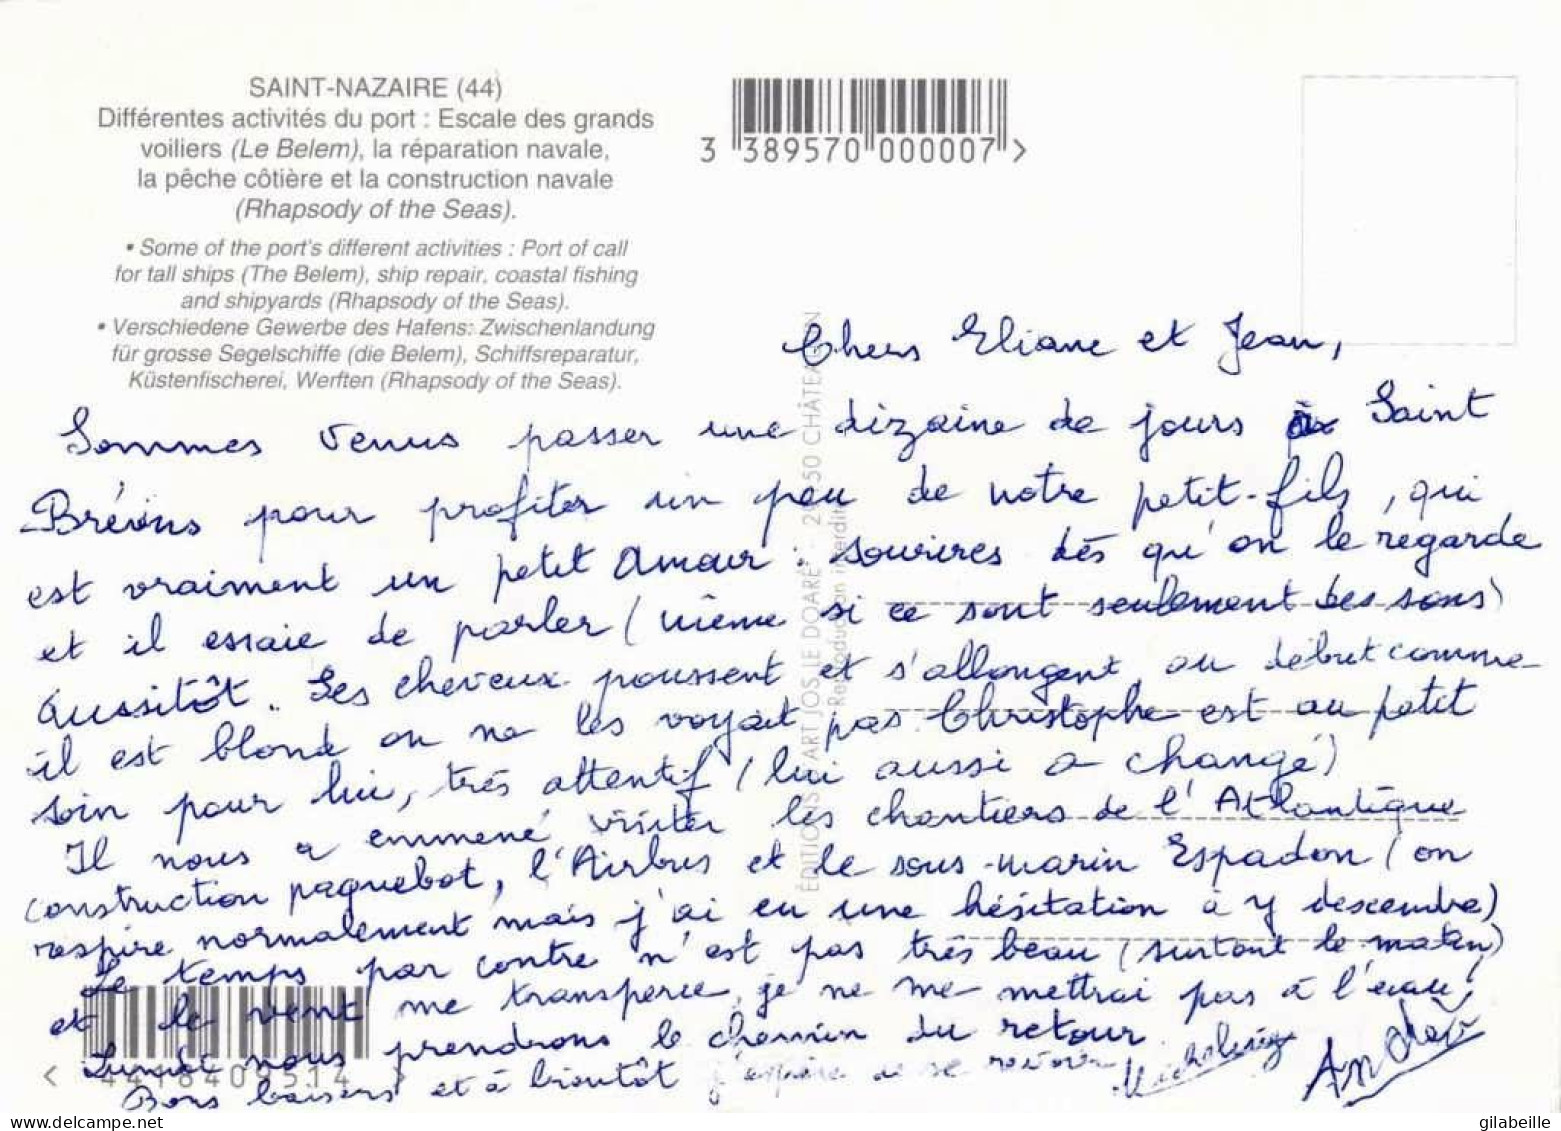 SAINT-NAZAIRE (44)
Différentes activités du port : Escale des grands
voiliers (Le Belem), la réparation navale,
la pêche côtière et la construction navale
(Rhapsody of the Seas).
• Some of the port's different activities : Port of call
for tall ships (The Belem), ship repair, coastal fishing
and shipyards (Rhapsody of the Seas).
• Verschiedene Gewerbe des Hafens: Zwischenlandung
für grosse Segelschiffe (die Belem), Schiffsreparatur,
Küstenfischerei, Werften (Rhapsody of the Seas).
3 389570 000007 >
ÉDITIONS D'ART JOS LE DOARÉ - 29150 CHÂTEAULIN
Reproduction interdite
Chers Eliane et Jean,
Sommes venus passer une dizaine de jours à Saint
Brévins pour profiter un peu de notre petit-fils, qui
est vraiment un petit Amour : sourires dès qu'on le regarde
et il essaie de parler (même si ce sont seulement des sons)
aussitôt. Ses cheveux poussent et s'allongent, au début comme
il est blond on ne les voyait pas. Christophe est au petit
soin pour lui, très attentif (lui aussi a changé)
Il nous a emmené visiter les chantiers de l'Atlantique
construction paquebot, l'Airbus et le sous-marin Espadon (on
respire normalement mais j'ai eu une hésitation à y descendre)
Le temps par contre n'est pas très beau (surtout le matin)
et le vent me transperce, je ne me mettrai pas à l'eau!
Lundi nous prendrons le chemin du retour
Bons baisers et à bientôt j'espère de se revoir
André
gilabeille